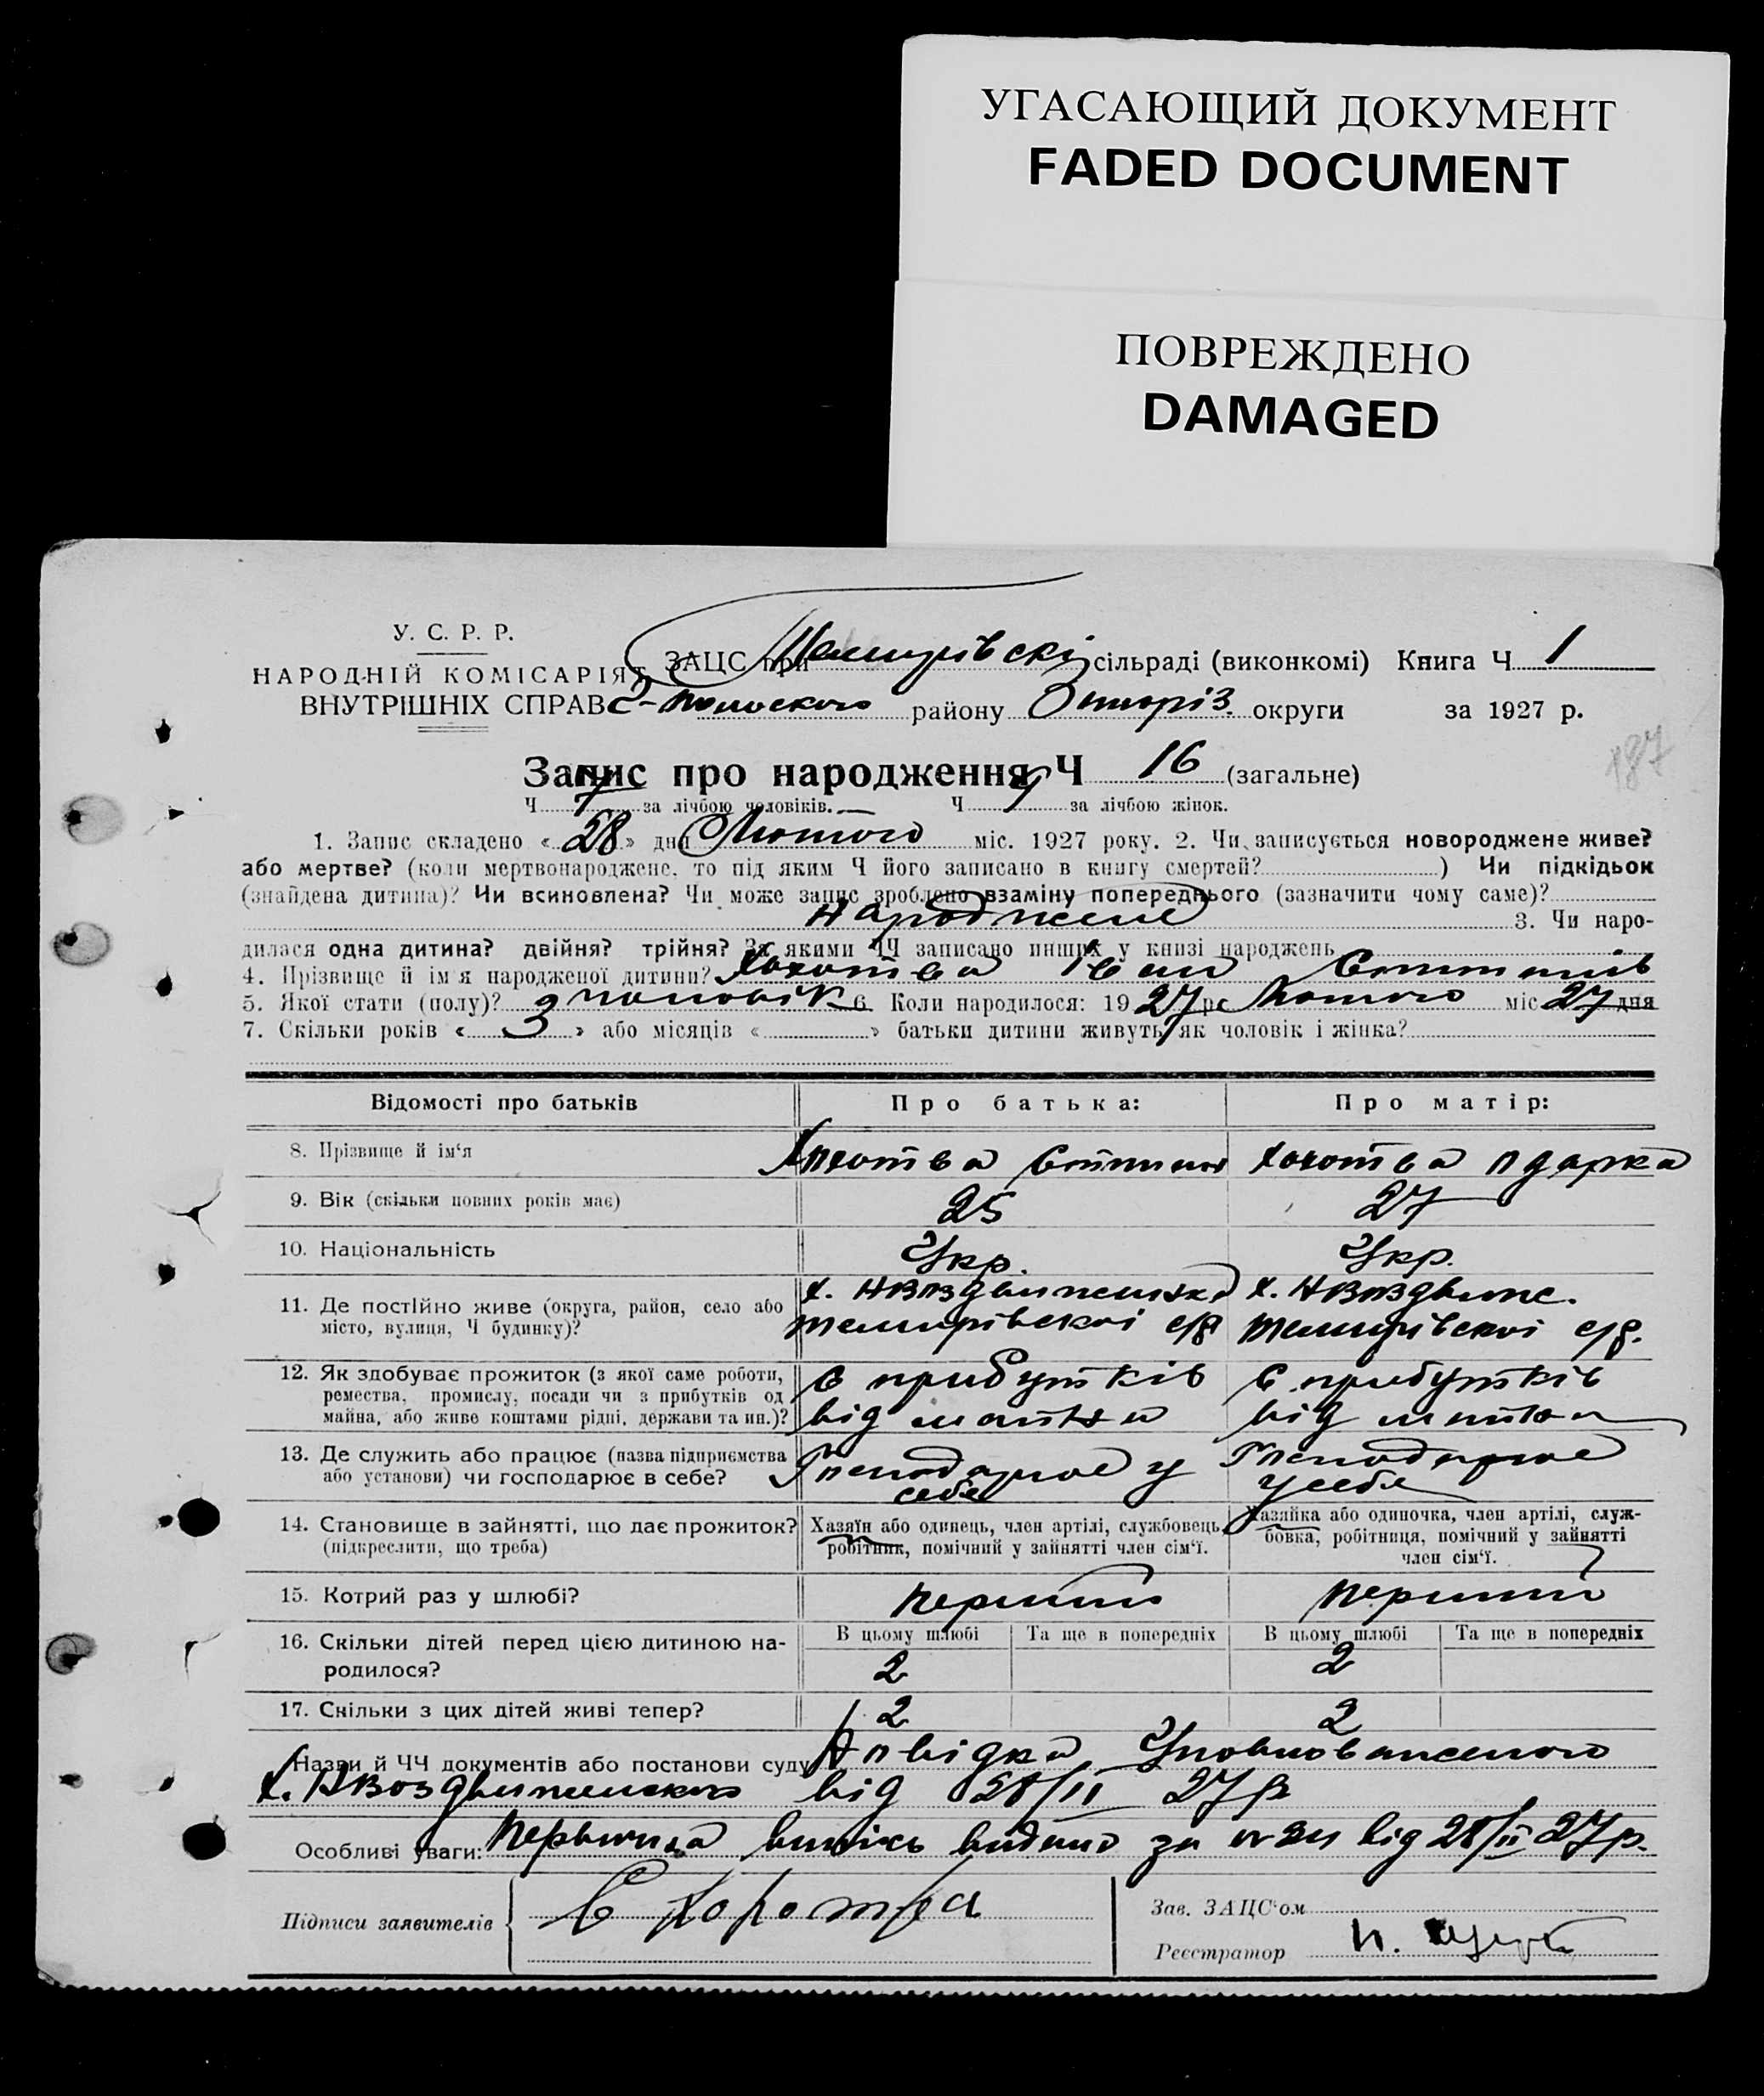 УГАСАЮЩИЙ ДОКУМЕНТ
FADED DOCUMENT
ПОВРЕЖДЕНО
DAMAGED
У. С. Р. Р.
НАРОДНІЙ КОМІСАРІЯТ
ВНУТРІШНІХ СПРАВ
ЗАЦС при Темирівскі сільраді (виконкомі) Книга Ч. 1
району Запоріз. округи за 1927 р.
187
Запис про народження Ч 16 (загальне)
Ч. 7 за лічбою чоловіків. Ч. 9 за лічбою жінок.
1. Запис складено «28» дня Лютого міс. 1927 року. 2. Чи записується новороджене живе?
або мертве? (коли мертвонароджене, то під яким Ч його записано в книгу смертей? ) Чи підкідьок
(знайдена дитина)? Чи всиновлена? Чи може запис зроблено взаміну попереднього (зазначити чому саме)?
народжене 3. Чи наро-
дилася одна дитина? двійня? трійня? За якими ЧЧ записано инших у книзі народжень
4. Прізвище й ім'я народженої дитини? Хохотва Іван
5. Якої стати (полу)? чоловік 6. Коли народилося: 1927 р. Лютого міс 27 дня
7. Скільки років « 3 » або місяців « » батьки дитини живуть як чоловік і жінка?
Відомості про батьків Про батька: Про матір:
8. Прізвище й ім'я Хохотва Степан Хохотва Одарка
9. Вік (скільки повних років має) 25 27
10. Національність Укр. Укр.
11. Де постійно живе (округа, район, село або
місто, вулиця, Ч будинку)?
х. НВоздвиженка х. НВоздвиже.
Темирівскоі с/р Темирівскоі с/р.
12. Як здобуває прожиток (з якої саме роботи,
ремества, промислу, посади чи з прибутків од
майна, або живе коштами рідні, держави та ин.)?
С прибутків С прибутків
від майна від майна
13. Де служить або працює (назва підприємства
або установи) чи господарює в себе?
Господарює у Господарює
себе у себе
14. Становище в зайнятті, що дає прожиток?
(підкреслити, що треба)
Хазяїн або одинець, член артілі, службовець,
робітник, помічний у зайнятті член сім'ї.
Хазяйка або одиночка, член артілі, служ-
бовка, робітниця, помічний у зайнятті
член сім'ї.
15. Котрий раз у шлюбі? Перший Перший
16. Скільки дітей перед цією дитиною на-
родилося?
В цьому шлюбі Та ще в попередніх В цьому шлюбі Та ще в попередніх
2 2
17. Скільки з цих дітей живі тепер? 2 2
Назви й ЧЧ документів або постанови суду Довідка Уповноваженого
х. НВоздвиженского від 28/II 27 р
Особливі уваги: Первична випісь видано за № від 28/II 27 р.
Підписи заявителів С Хохотва
Зав. ЗАЦС'ом
Реєстратор